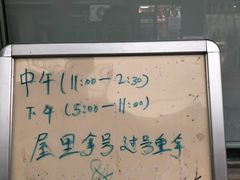 中午(11:00—2:30)
下午(5:00—11:00)
屋里拿号 过号重拿